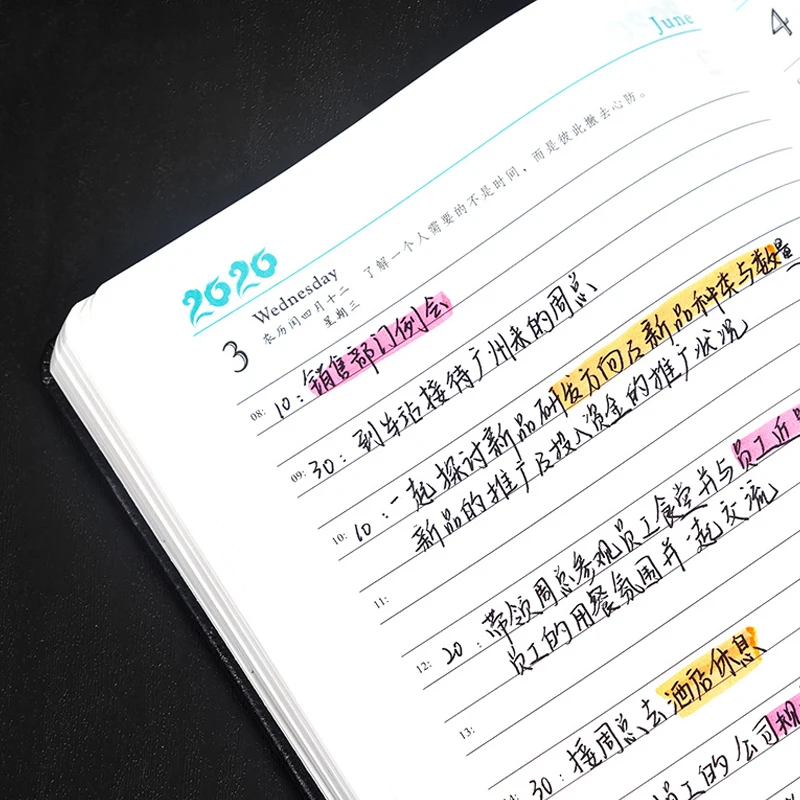 June
4
了解一个人需要的不是时间，而是彼此撤去心防。
2026
3
Wednesday
农历闰四月十二
星期三
08: 10: 销售部门例会
09: 30: 到车站接待广州来的周总
10: 10: 一起探讨新品研发方向及新品种类与数量
新品的推广及投入资金的推广状况
11:
12: 20: 带领周总参观员工食堂并与员工近
员工的用餐氛围并一起交流
13:
30: 接周总去酒店休息
员工的公司